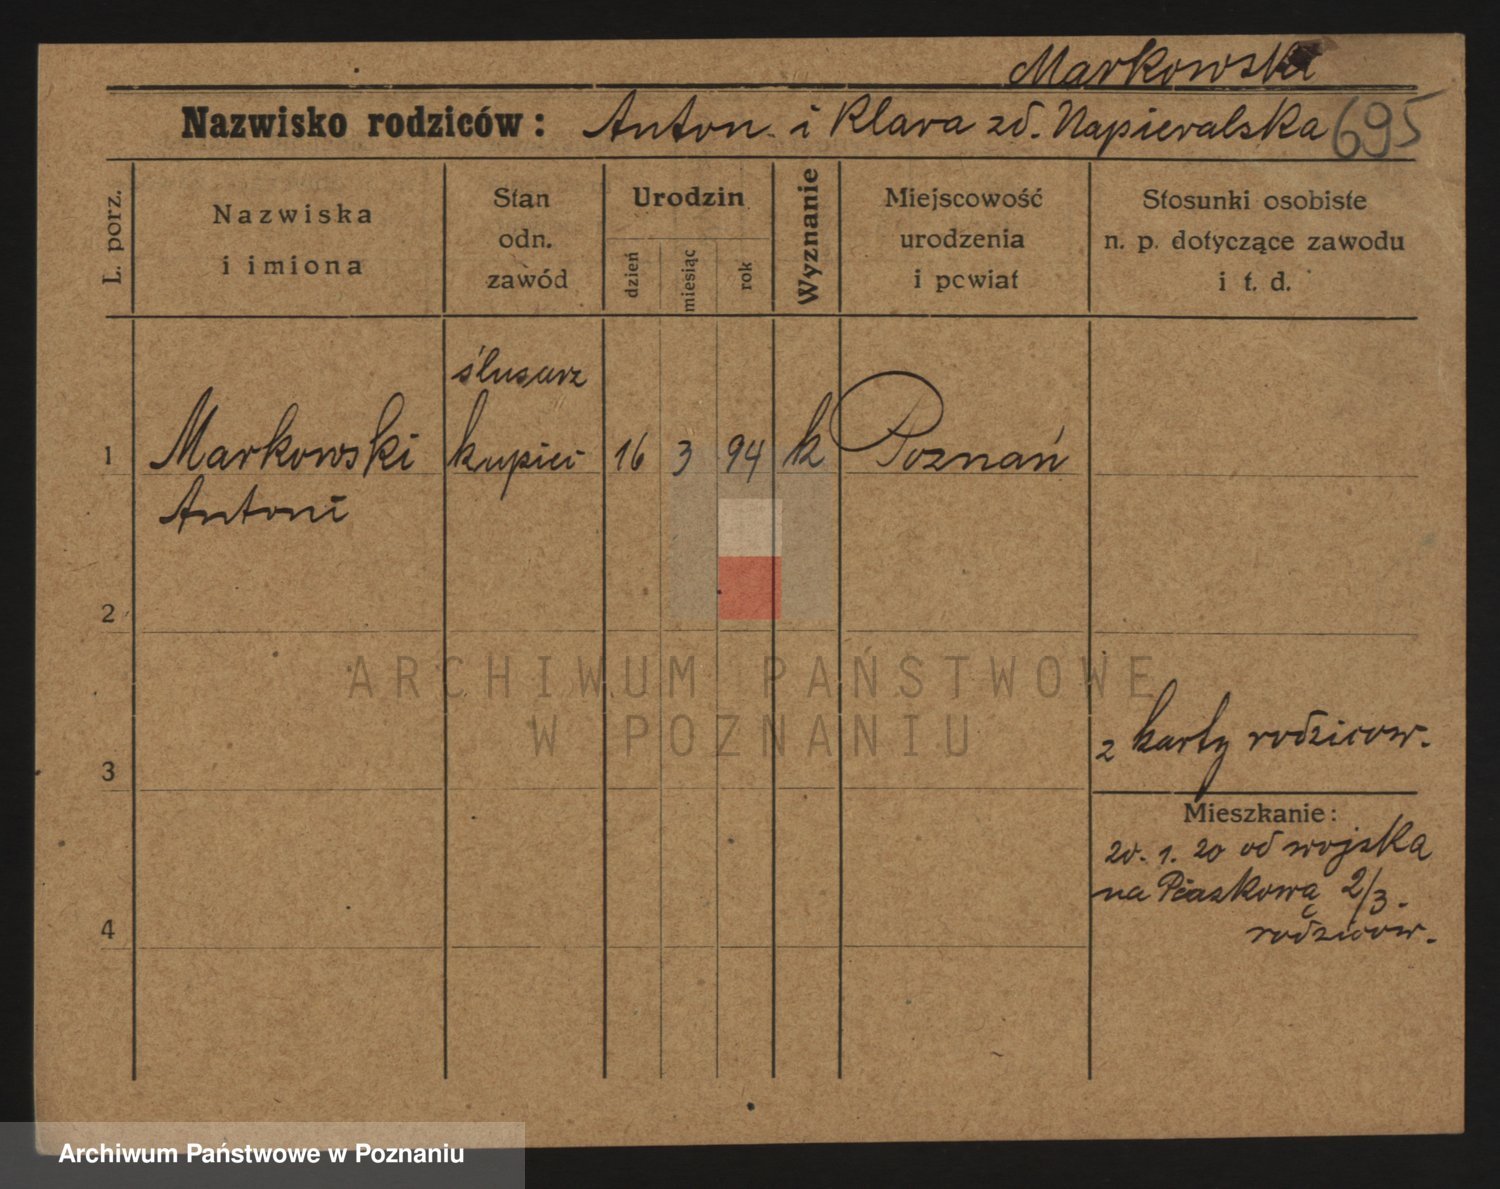 Markowski
Nazwisko rodziców: Anton. i Klara zd. Napieralska 695
L. porz.
Nazwiska
i imiona
Stan
odn.
zawód
Urodzin
dzień
miesiąc
rok
Wyznanie
Miejscowość
urodzenia
i powiat
Stosunki osobiste
n. p. dotyczące zawodu
i t. d.
ślusarz
1 Markowski kupiec 16 3 94 k Poznań
Antoni
2
ARCHIWUM PAŃSTWOWE
W POZNANIU
z karty rodzicow.
3
Mieszkanie:
20. 1. 20 od wojska
na Piaskową 2/3.
rodzicow.
4
Archiwum Państwowe w Poznaniu